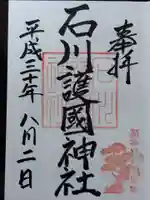 奉拝
石川護國神社
平成三十年八月二日